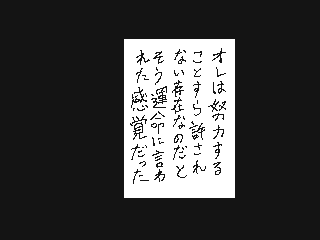 オレは努力する
ことすら許され
ない存在なのだと
そう運命に言わ
れた感覚だった